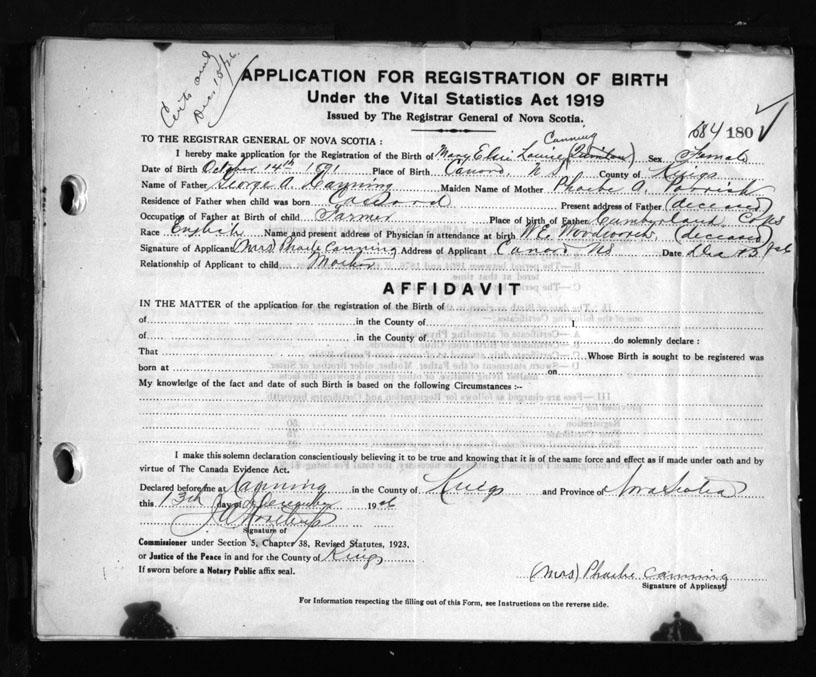 Certs and
Dec 18/26
APPLICATION FOR REGISTRATION OF BIRTH
Under the Vital Statistics Act 1919
Issued by The Registrar General of Nova Scotia.
684 180
TO THE REGISTRAR GENERAL OF NOVA SCOTIA :
Canning
I hereby make application for the Registration of the Birth of Mary Elsie Sex Female
Date of Birth October 14th 1891 Place of Birth N.S. County of Kings
Name of Father George A. Canning Maiden Name of Mother Phoebe A.
Residence of Father when child was born Present address of Father (deceased)
Occupation of Father at Birth of child Farmer Place of Birth of Father Cumberland
Race English Name and present address of Physician in attendance at birth W.E. Woodworth (deceased)
Signature of Applicant (Mrs) Phoebe Canning Address of Applicant NS Date Dec
Relationship of Applicant to child Mother
AFFIDAVIT
IN THE MATTER of the application for the registration of the Birth of
of in the County of I
of in the County of do solemnly declare :
That Whose Birth is sought to be registered was
born at on
My knowledge of the fact and date of such Birth is based on the following Circumstances :-
I make this solemn declaration conscientiously believing it to be true and knowing that it is of the same force and effect as if made under oath and by
virtue of The Canada Evidence Act.
Declared before me at Canning in the County of Kings and Province of Nova Scotia
this 13th day of December 1926
Signature of
Commissioner under Section 5, Chapter 38, Revised Statutes, 1923,
or Justice of the Peace in and for the County of Kings
If sworn before a Notary Public affix seal.
(Mrs) Phoebe Canning
Signature of Applicant
For Information respecting the filling out of this Form, see Instructions on the reverse side.